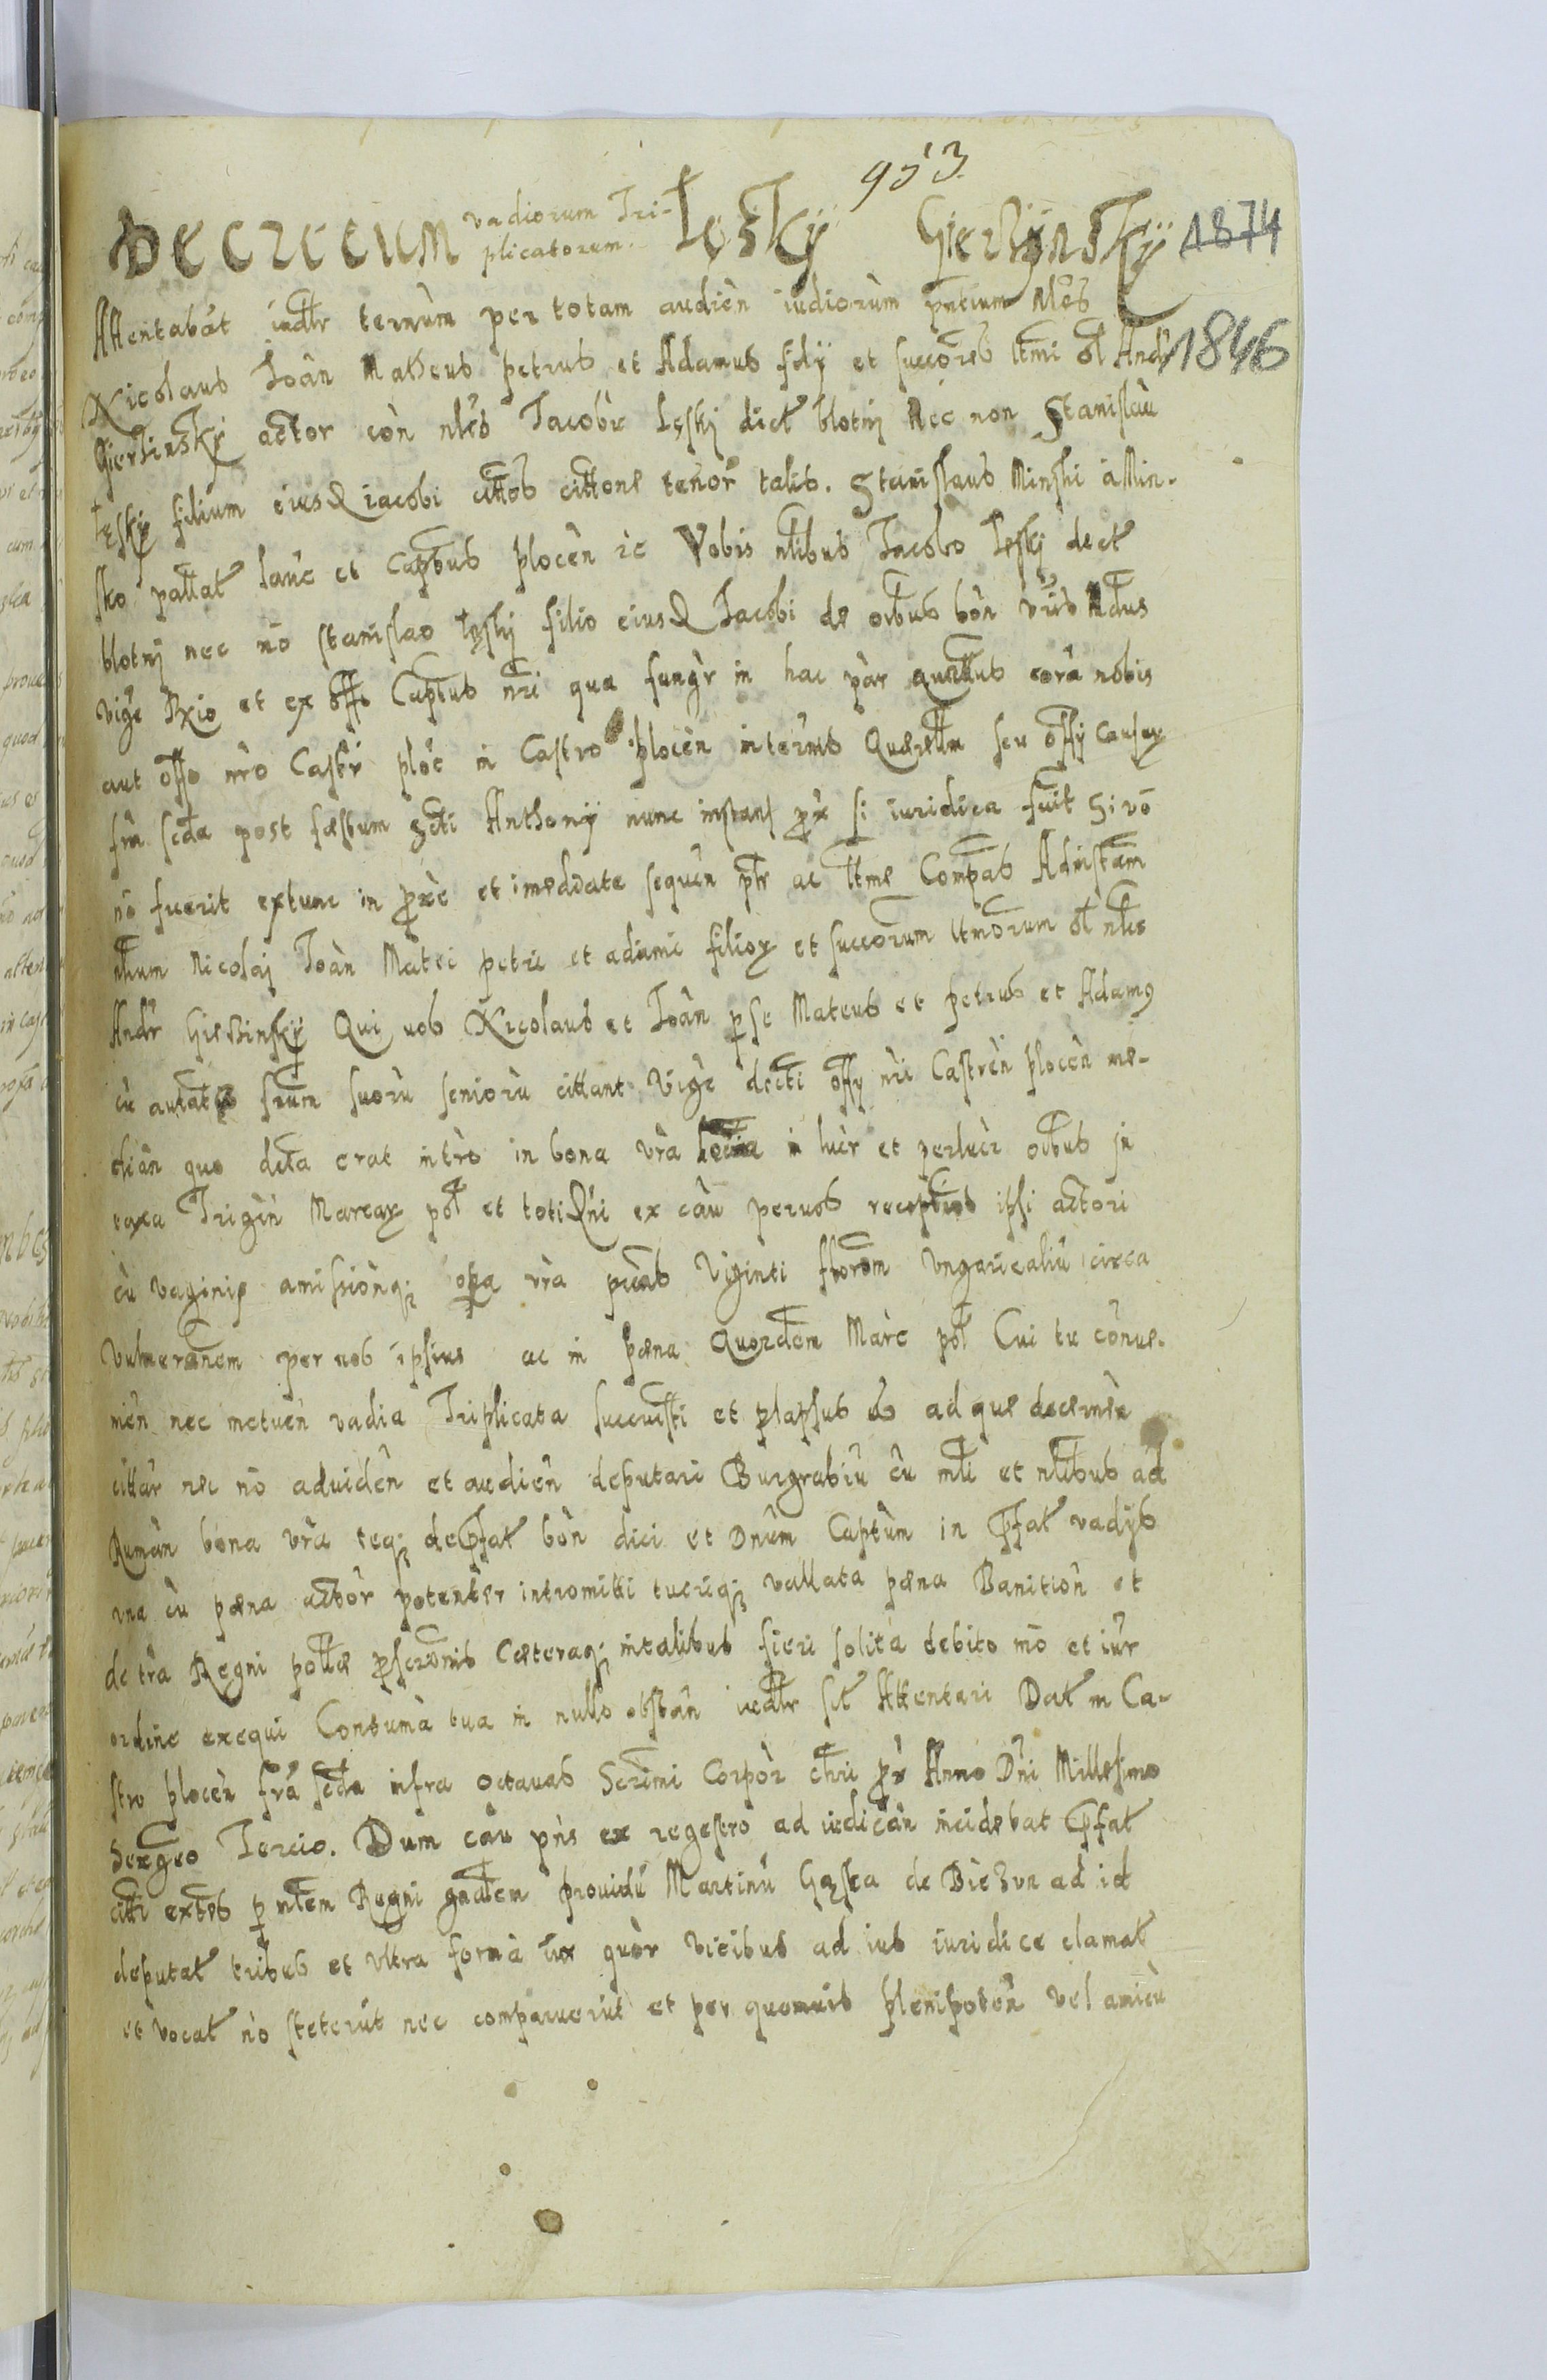 953
Decretum vadiorum Tri-
plicatorum. Lęsky Gierzijnsky 1874
1846
Attentabāt iudlr ternùm per totam audièn iudiorùm pntium Nles
Nicolaus Ioân Matheus petrus et Adamus fily et succores ltmi ol Andr
Gierzinsky actor còn nles Iacobu Lęskj dict blotnj Nec non Stanislàu
Lęsky filium eiusd iacobi cittos cittone tenor talis. Stanislaus Minski à Min-
sko pallat lanc et Captus plocèn ic Vobis nlibus Iacobo Lęskj dect
blotnj nec nō stanislao Lęskj filio eiusd Iacobi de oibus bòn vris Mdus
vige Rxio et ex offo Captus nri qua fungr in hac pàr quattus corā nobis
aut offo nro Castr ploc in Castro plocèn intermis Quarellar seu offy Causar
fria scda post fæstum Scti Anthony nunc instant px si iuridica fuit Si vō
nō fuerit extunc in pxe et imeddate sequèn ptr ac ltme Compas Adinstam
nlium Nicolaj Ioàn Matei petri et adami filior et succorum ltmorum ol nles
Andr Giersinsky Qui uos Nicolaus et Ioân p se Mateus et petrus et Adamus
cu autate frum suorù seniorù cittant Vigè decti offy nri Castrèn plocèn me-
diân quo deta erat intrò in bona vra in lucr et perlucr oibus in
taxa Trigin Marcar pol et totidni ex càu peruos receptios ipsi actori
cù vaginis amissionq opa vra pcuas Viginti florem vngaricaliù circa
vulneranem per uos ipsius ac in pæna Quordem Marc pol Cui tu conue-
nièn nec metuèn vadia Triplicata succuisti et plapsus es ad que decernèn
cittar nec nō aduidèn et audièn deputari Burgrabiù cù mli et nlibus ad
Rumàn bona vra teq depfat bòn dici et Dnùm Captùm in pfat vadys
vna cù pæna actòr potenter intromitti tueriq vallata pæna Banitiòn et
de tra Regni polle pscronis Cæteraq intalibus fieri solita debito mō et iur
ordine exequi Contumà tua in nullo obstàn iudlr sit Attentari Dat in Ca-
stro plocèn fra scda infra octauas Scrimi Corpòr chri px Anno Dni Millesimo
Sexgeo Tercio. Dum càu pns ex regestro ad iudicàn incidebat pfat
citti extres p mlem Regni gnalem prouidù Martinù Gęska de Biezun ad id
deputat tribus et vltra formà iur quòr vicibus ad ius iuridice clamat
et vocat nō steterùt nec comparuerùt et per quemuis plenipotèn vel amicù